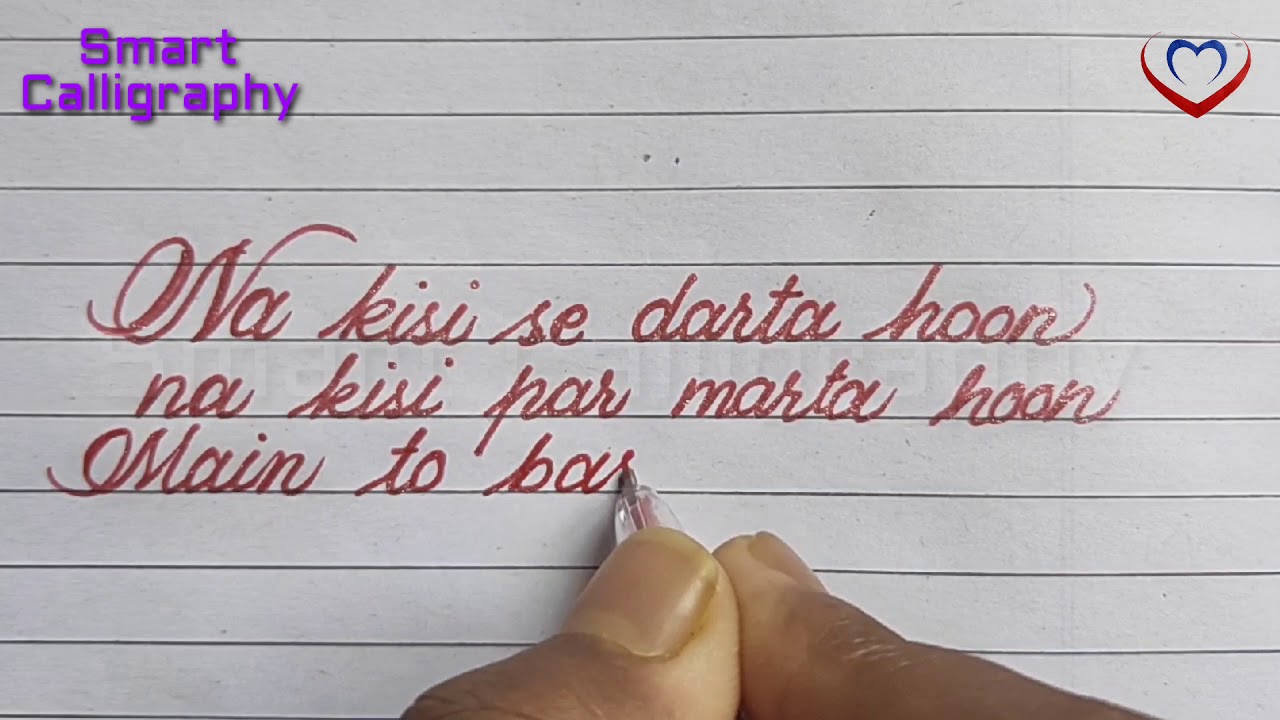 Smart
Calligraphy
Na kisi se darta hoon
na kisi par marta hoon
Main to bas